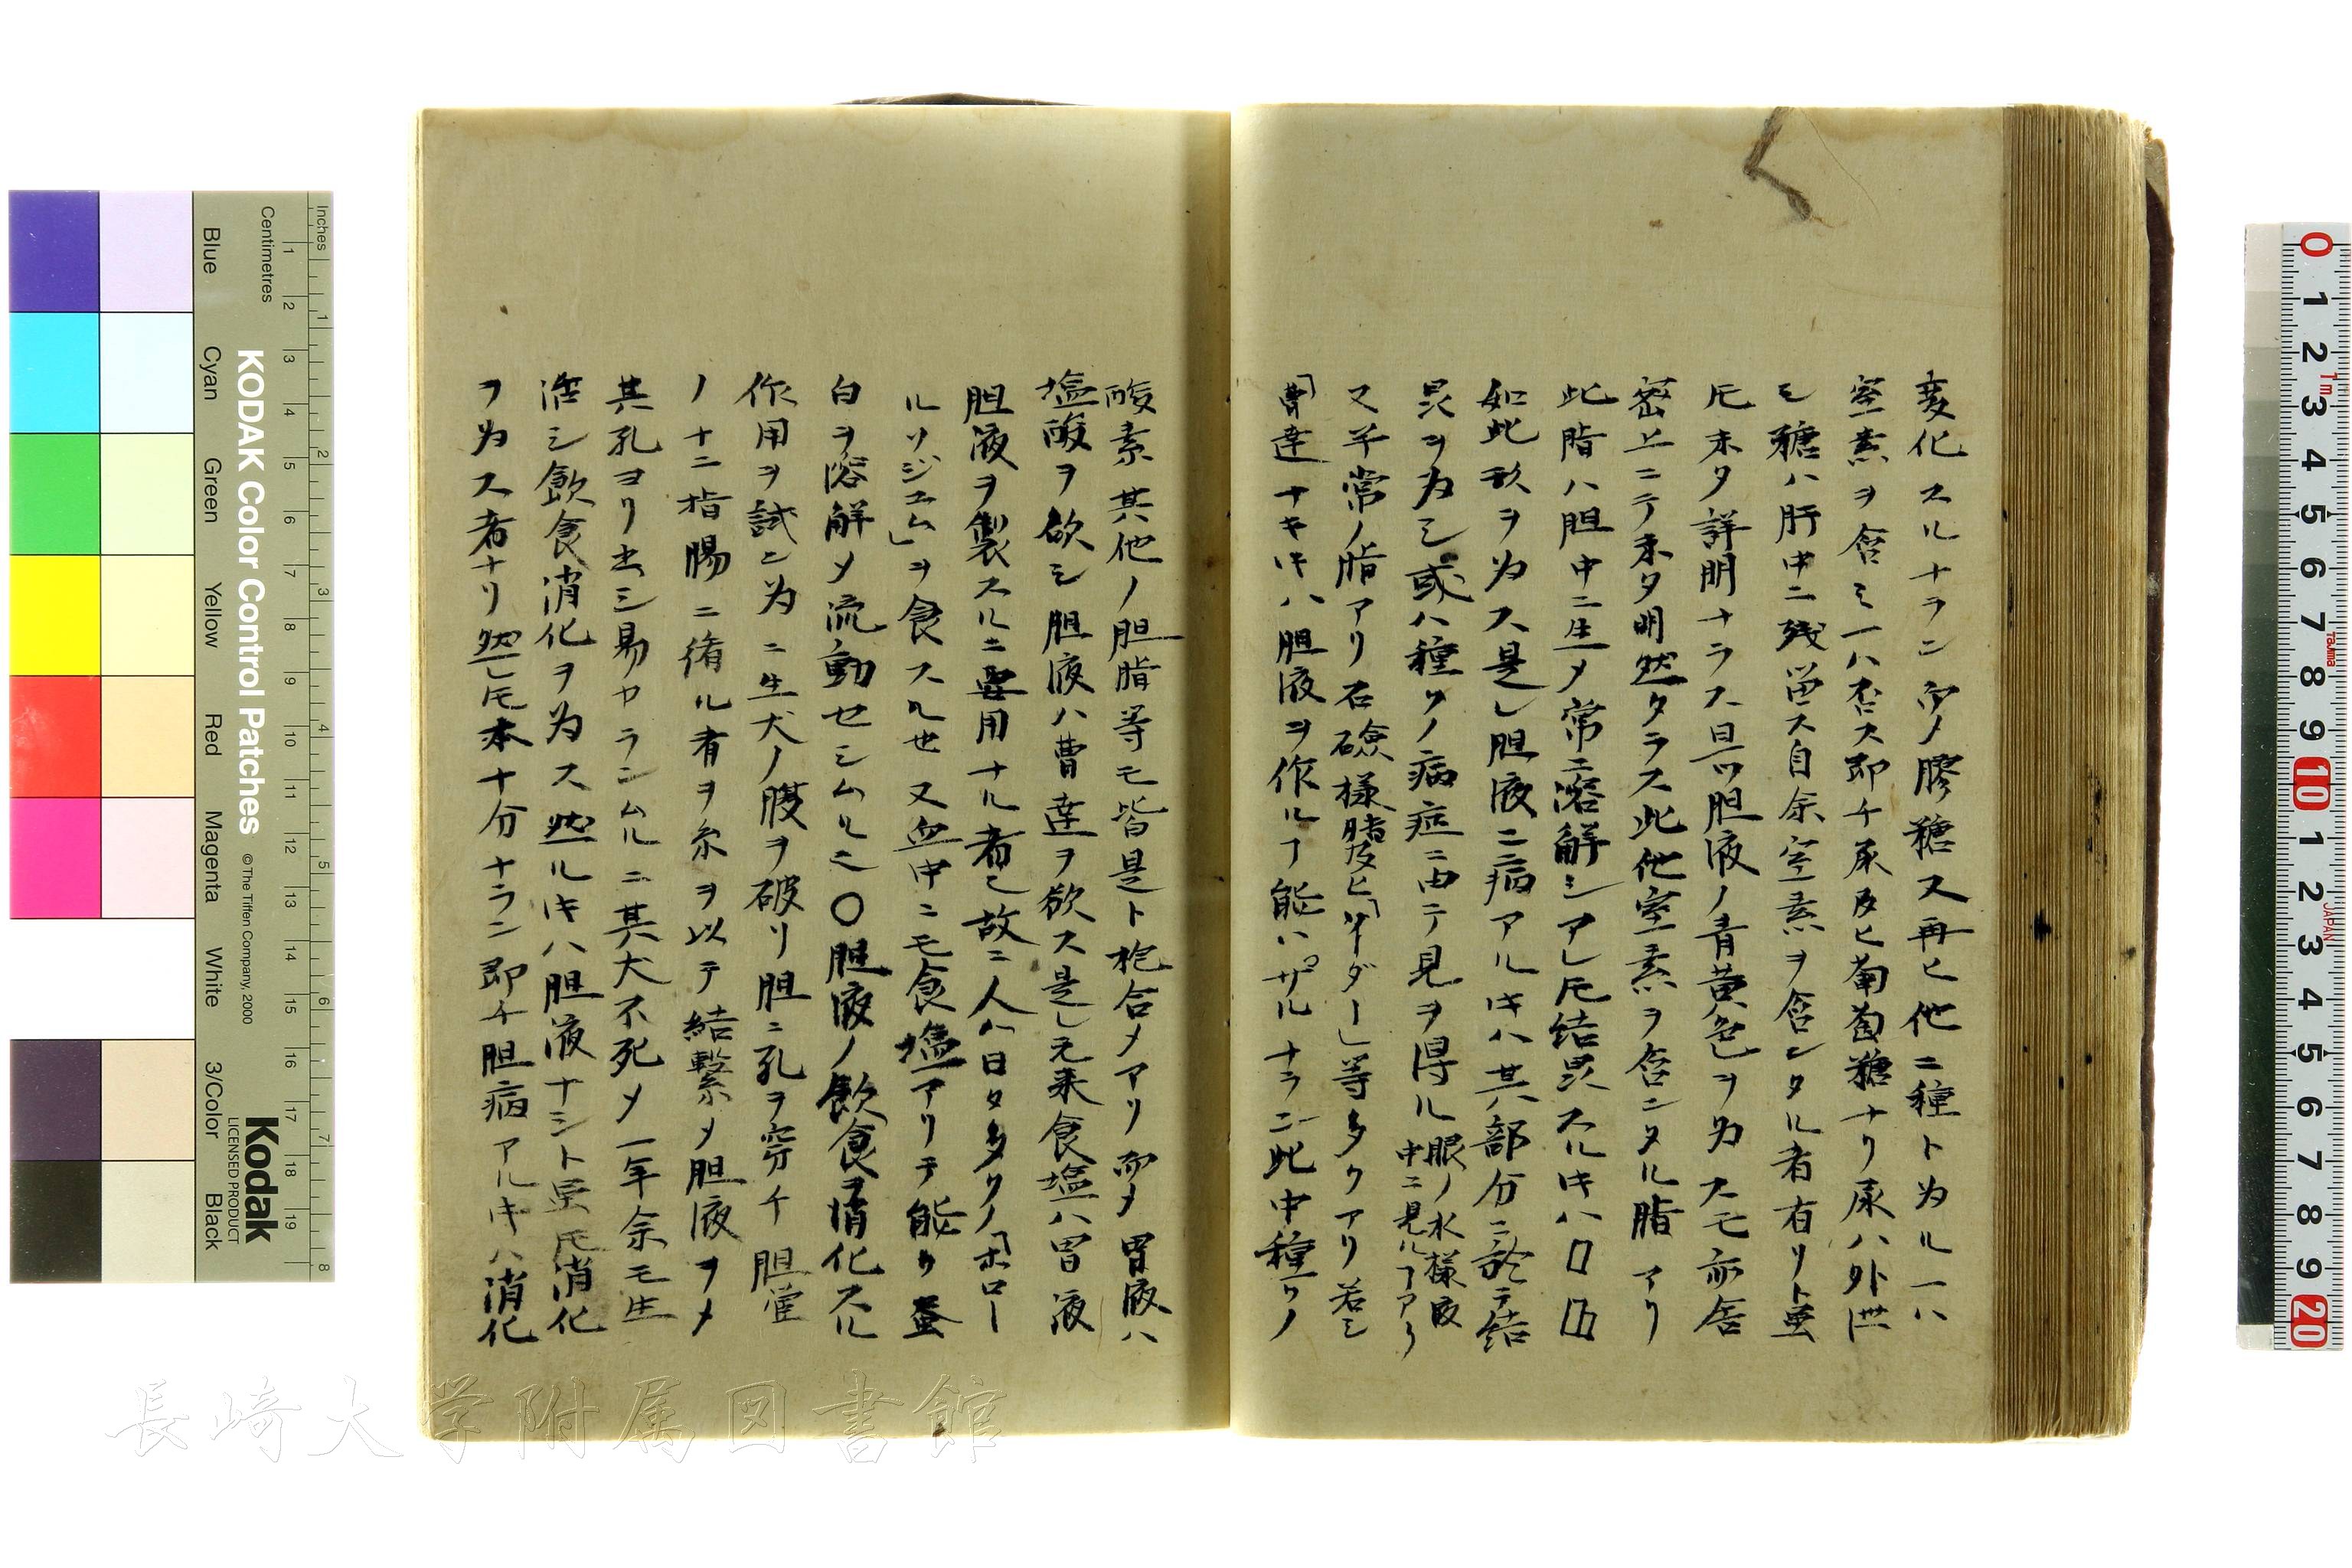 変化スルナラン而メ膠糖又再ヒ他ニ種ト為ル一ハ
窒素ヲ含ミ一ハ否ス即チ尿及ヒ葡萄糖ナリ尿ハ外泄
シ糖ハ肝中ニ残留ス自余窒素ヲ含ンタル者有リト虽
𪜈未タ詳明ナラス且ツ胆液ノ青黄色ヲ為スモ亦舎
密上ニテ未タ明然タラス此他窒素ヲ含ンタル脂アリ
此脂ハ胆中ニ生メ常ニ溶解シアレ𪜈結晃スルキハ
如此形ヲ為ス是レ胆液ニ病アルキハ其部分ニ於テ結
晃ヲ為シ或ハ種々ノ病症ニ由テ見ヲ得ル
眼ノ水様液
中ニ見ルヿアリ
又平常ノ脂アリ石鹸様脂及ヒ「ソーダー」等多クアリ若シ
「曹達」ナキキハ胆液ヲ作ルヿ能ハザルナラン此中種々ノ
酸素其他ノ胆脂等モ皆是ト抱合メアリ而メ胃液ハ
塩酸ヲ欲シ胆液ハ曹達ヲ欲ス是レ元来食塩ハ胃液
胆液ヲ製スルニ要用ナル者也故ニ人々日々多クノ「ホロー
ルソジユム」ヲ食スル也又血中ニモ食塩アリテ能ク蛋
白ヲ溶解メ流動セシムル也〇胆液ノ飲食ヲ消化スル
作用ヲ試ン為ニ生犬ノ腹ヲ破リ胆ニ孔ヲ穿チ胆管
ノ十二指腸ニ循ル者ヲ糸ヲ以テ結繋メ胆液ヲメ
其孔ヨリ出シ易カランムルニ其犬不死メ一年余モ生
活シ飲食消化ヲ為ス然ルキハ胆液ナシト虽𪜈消化
ヲ為ス者ナリ然レ𪜈本十分ナラン即チ胆病アルキハ消化
KODAK Color Control Patches
© The Tiffen Company, 2000
Kodak
LICENSED PRODUCT
Inches
Centimetres
Blue
Cyan
Green
Yellow
Red
Magenta
White
3/Color
Black
長崎大学附属図書館